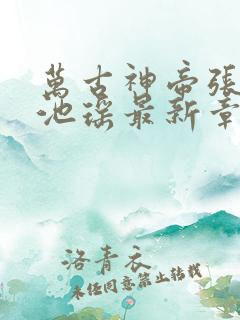 萬古神帝張
池瑤最新章
洛青衣
未经同意禁止转载